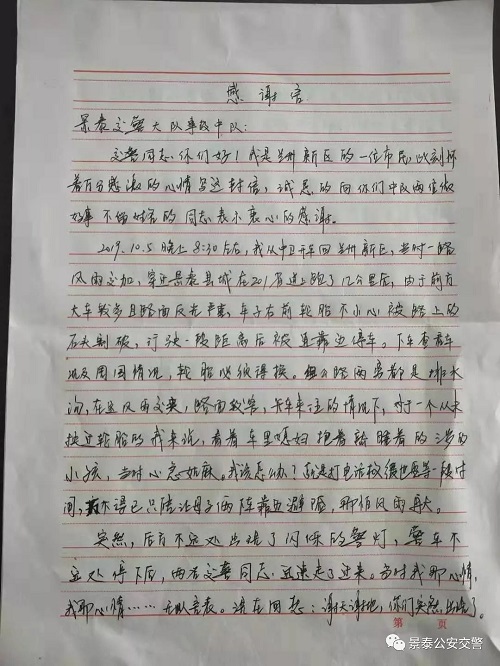 感谢信
景泰交警大队事故中队:
交警同志你们好!我是兰州新区的一位市民,此刻怀
着万分感激的心情写这封信,诚恳的向你们中队两位做
好事不留姓名的同志表示衷心的感谢。
2019.10.5晚上8:30左右,我从中卫开车回兰州新区,当时一路
风雨交加,穿过景泰县城在201省道上跑了12公里后,由于前方
大车较多且路面反光严重,车子右前轮胎不小心被路上的
石头割破,行驶一段距离后被直靠边停车。下车查看车
况及周围情况,轮胎必须得换。但公路两旁都是排水
沟,在这风雨交夹,路面较窄,卡车来往的情况下,对于一个从未
换过轮胎的我来说,看着车里媳妇抱着熟睡着的三岁的
小孩,当时心急如麻。我该怎么办?就是打电话救援也要等一段时
间,不得已只能让母子俩陪靠边避隔,那怕风雨再大。
突然,后方不远处出现了闪烁的警灯,警车不
远处停下后,两名交警同志迅速走了过来。当时我那心情,
我那心情……无以言表。现在回想:谢天谢地,你们突然出现了。
第 页
景泰公安交警